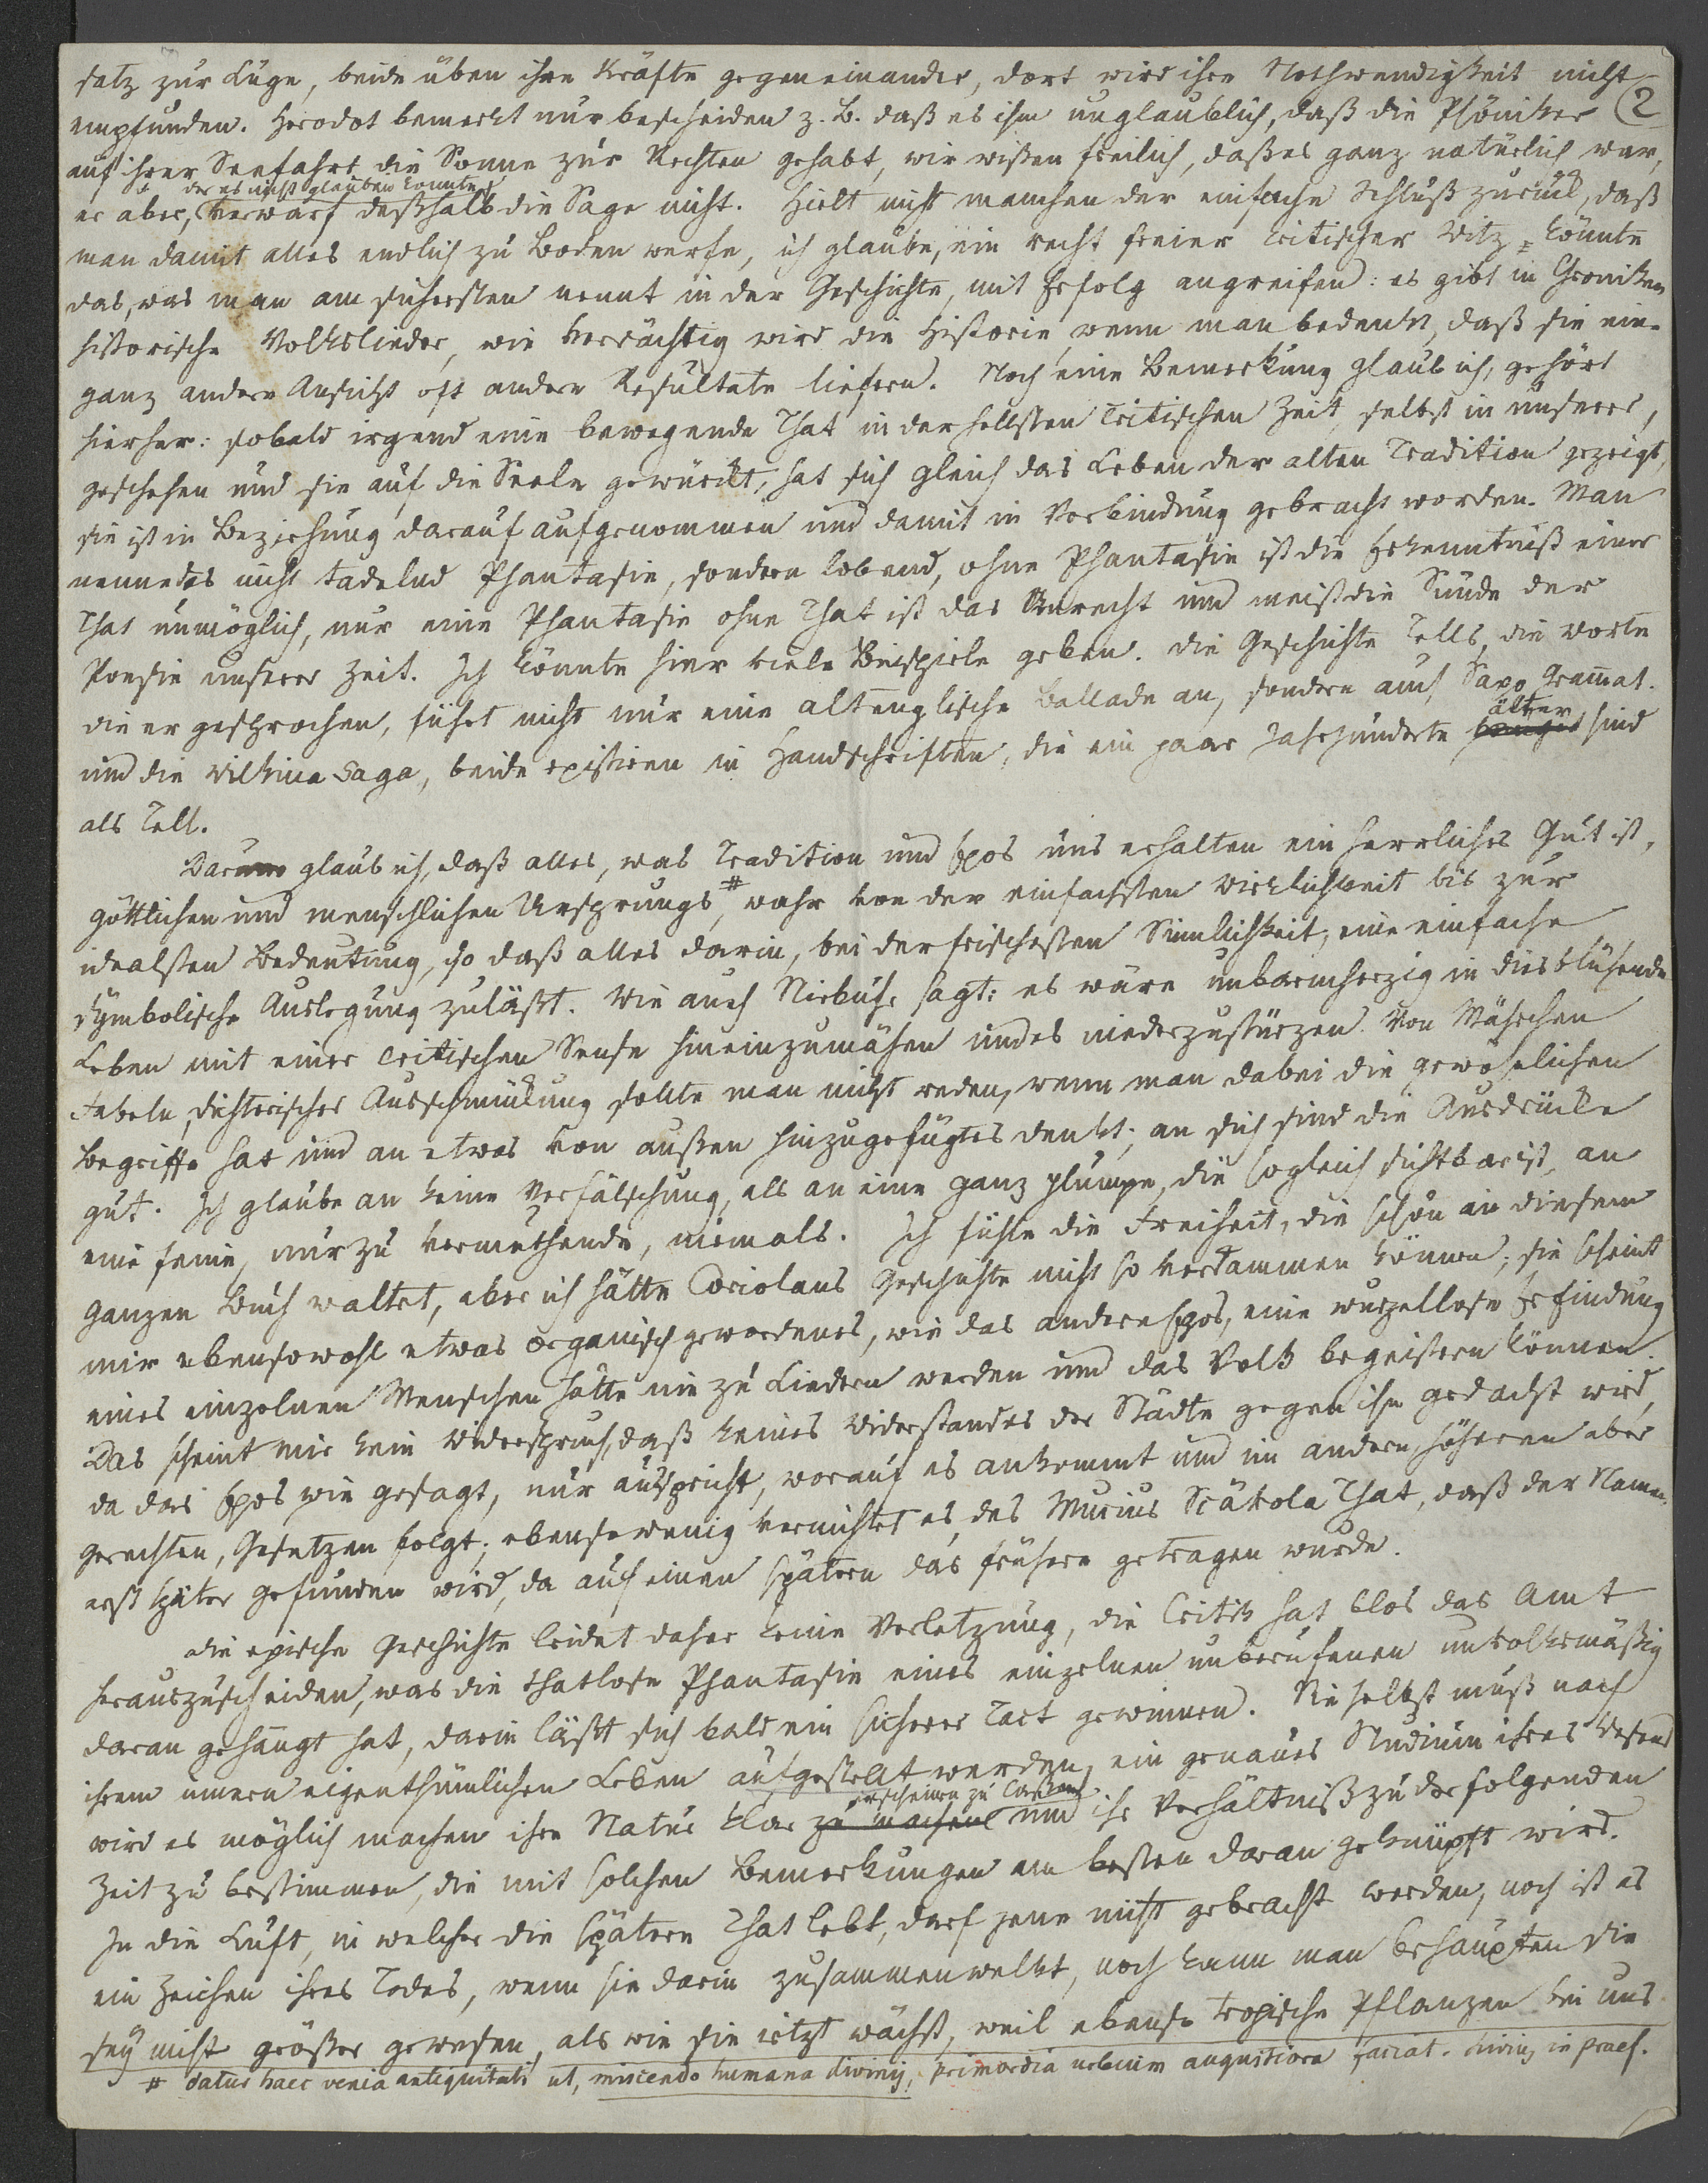 satz zur Lüge, beide üben ihre Kräfte gegen einander, dort wird ihre Nothwendigkeit nicht
empfunden. Herodot bemerkt nur bescheiden z. B. daß es ihm unglaublich, daß die Phöniker 2
auf ihrer Seefahrt die Sonne zur Rechten gehabt, wir wißen freilich, daß es ganz natürlich war,
der es nicht glauben konnte
er aber, verwarf deßhalb die Sage nicht. Hielt nicht manchen der einfache Schluß zurück, daß
man damit alles endlich zu Boden werfe, ich glaube, ein recht freier critischer Witz könnte
das, was man am sichersten nennt in der Geschichte, mit Erfolg angreifen: es gibt in Croniken
historische Volkslieder, wie verdächtig wird die Historie, wenn man bedenkt, daß sie eine
ganz andere Ansicht oft andere Resultate liefern. Noch eine Bemerkung glaub ich, gehört
hierher: sobald irgend eine bewegende That in der hellsten critischen Zeit, selbst in unserer,
geschehen und sie auf die Seele gewürckt, hat sich gleich das Leben der alten Tradition gezeigt,
sie ist in Beziehung darauf aufgenommen und damit in Verbindung gebracht worden. Man
nenne das nicht tadelnd Phantasie, sondern lobend, ohne Phantasie ist die Erkenntniß einer
That unmöglich, nur eine Phantasie ohne That ist das Unrecht und meist die Sünde der
Poesie unserer Zeit. Ich könnte hier viele Beispiele geben. die Geschichte Tells, die Worte
die er gesprochen, führt nicht nur eine altenglische Ballade an, sondern auch Saxo Gram̄at.
älter
und die Wilkina Saga, beide existiren in Handschriften, die ein paar Jahrhunderte sind
als Tell.
Darum glaub ich, daß alles, was Tradition und Epos uns erhalten ein herrliches Gut ist,
göttlichen und menschlichen Ursprungs #, wahr von der einfachsten Wirklichkeit bis zur
idealsten Bedeutung, so daß alles darin, bei der frischesten Sinnlichkeit, eine einfache
symbolische Auslegung zuläßt. Wie auch Niebuhr sagt: es wäre unbarmherzig in dies blühende
Leben mit einer critischen Sense hineinzumähen und es niederzustürzen. Von Mährchen
Fabeln, dichterischer Ausschmückung sollte man nicht reden, wenn man dabei die gewöhnlichen
Begriffe hat und an etwas von außen hinzugefügtes denkt; an sich sind die Ausdrücke
gut. Ich glaube an keine Verfälschung, als an eine ganz plumpe, die sogleich sichtbar ist, an
eine feine, nur zu vermuthende, niemals. Ich fühle die Freiheit, die schön in diesem
ganzen Buch waltet, aber ich hätte Coriolans Geschichte nicht so verdammen können; sie scheint
mir ebensowohl etwas organisch gewordenes, wie das andere Epos, eine wurzellose Erfindung
eines einzelnen Menschen hätte nie zu Liedern werden und das Volk begeistern können.
Das scheint mir kein Widerspruch, daß keines Widerstandes der Städte gegen ihn gedacht wird,
da das Epos wie gesagt, nur ausspricht, worauf es ankommt und im andern höheren aber
gerechten, Gesetzen folgt; ebensowenig vernichtet es des Mucius Scävola That, daß der Namen
erst später gefunden wird, da auf einen spätern das frühere getragen wurde.
die epische Geschichte leidet daher keine Verletzung, die Critik hat blos das Amt
herauszuscheiden, was die thatlose Phantasie eines einzelnen unberufenen unvolksmäßig
daran gehängt hat, darin läßt sich bald ein sicherer Tact gewinnen. Sie selbst muß nach
ihrem innern eigenthümlichen Leben aufgestellt werden, ein genaues Studium ihres Wesens
erscheinen zu laßen
wird es möglich machen ihre Natur klar zu machen und ihr Verhältniß zu der folgenden
Zeit zu bestimmen, die mit solchen Bemerkungen am besten daran geknüpft wird.
In die Luft, in welcher die spätere That lebt, darf jene nicht gebracht werden, noch ist es
ein Zeichen ihres Todes, wenn sie darin zusammenwelkt, noch kann man behaupten sie
sey nicht größer gewesen, als wie sie jetzt wächst, weil ebenso tropische Pflanzen bei uns
# datur haec venia antiquitati ut, miscendo humana divinis, primordia urbium augustiora faciat. Livius in praef.